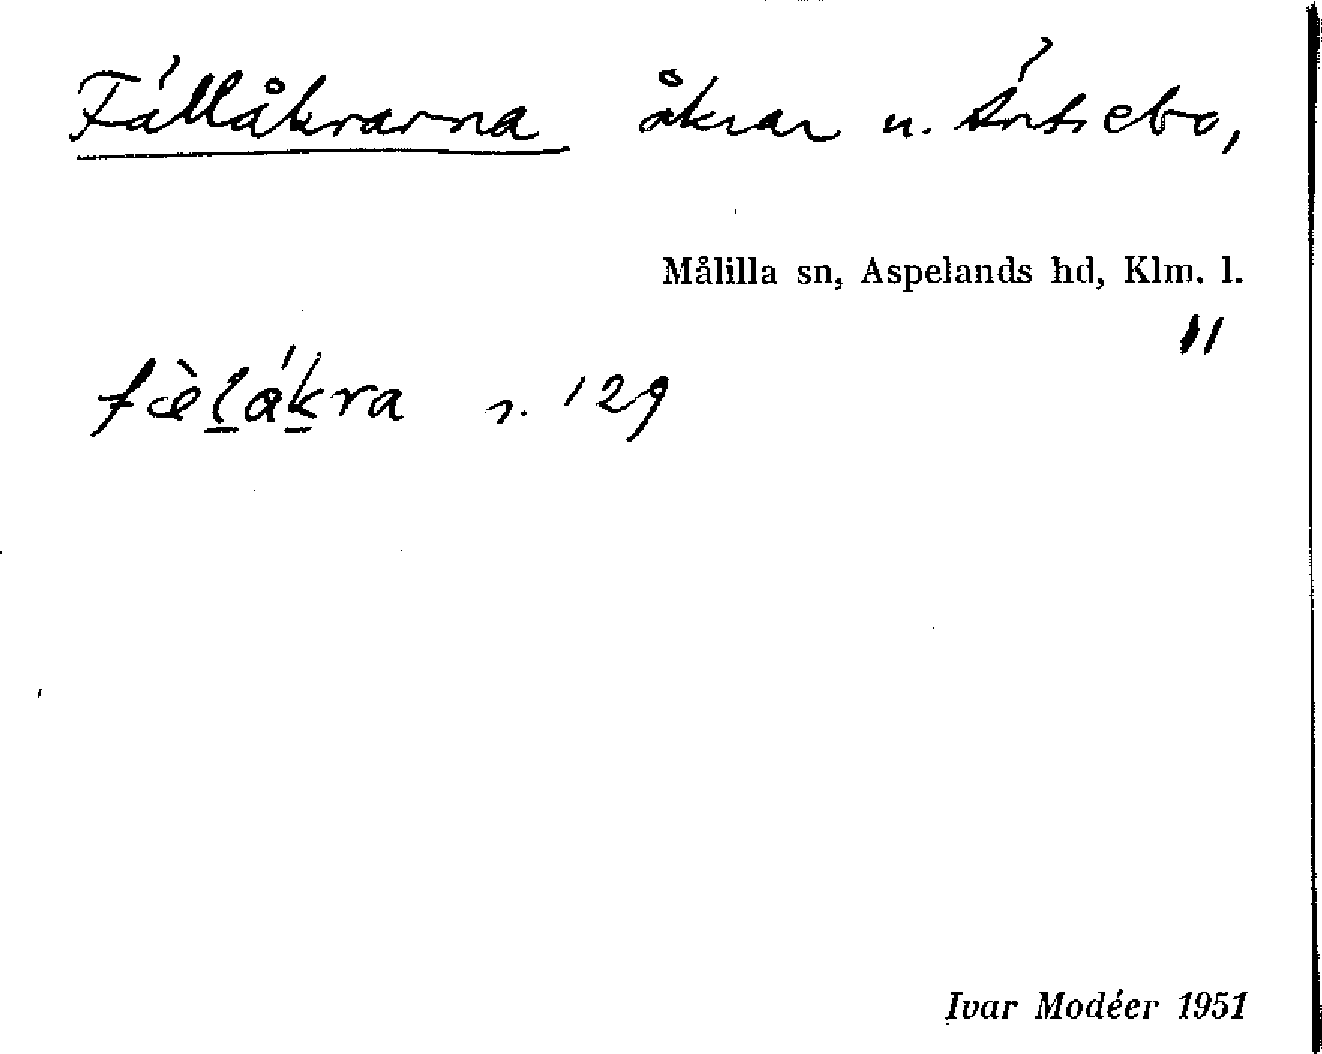 Fállåkrarna åkrar u. Ántsebo,
Målilla sn, Aspelands hd, Klm. l.
11
fæ̀l̲ák̲ra s. 129
Ivar Modéer 1951